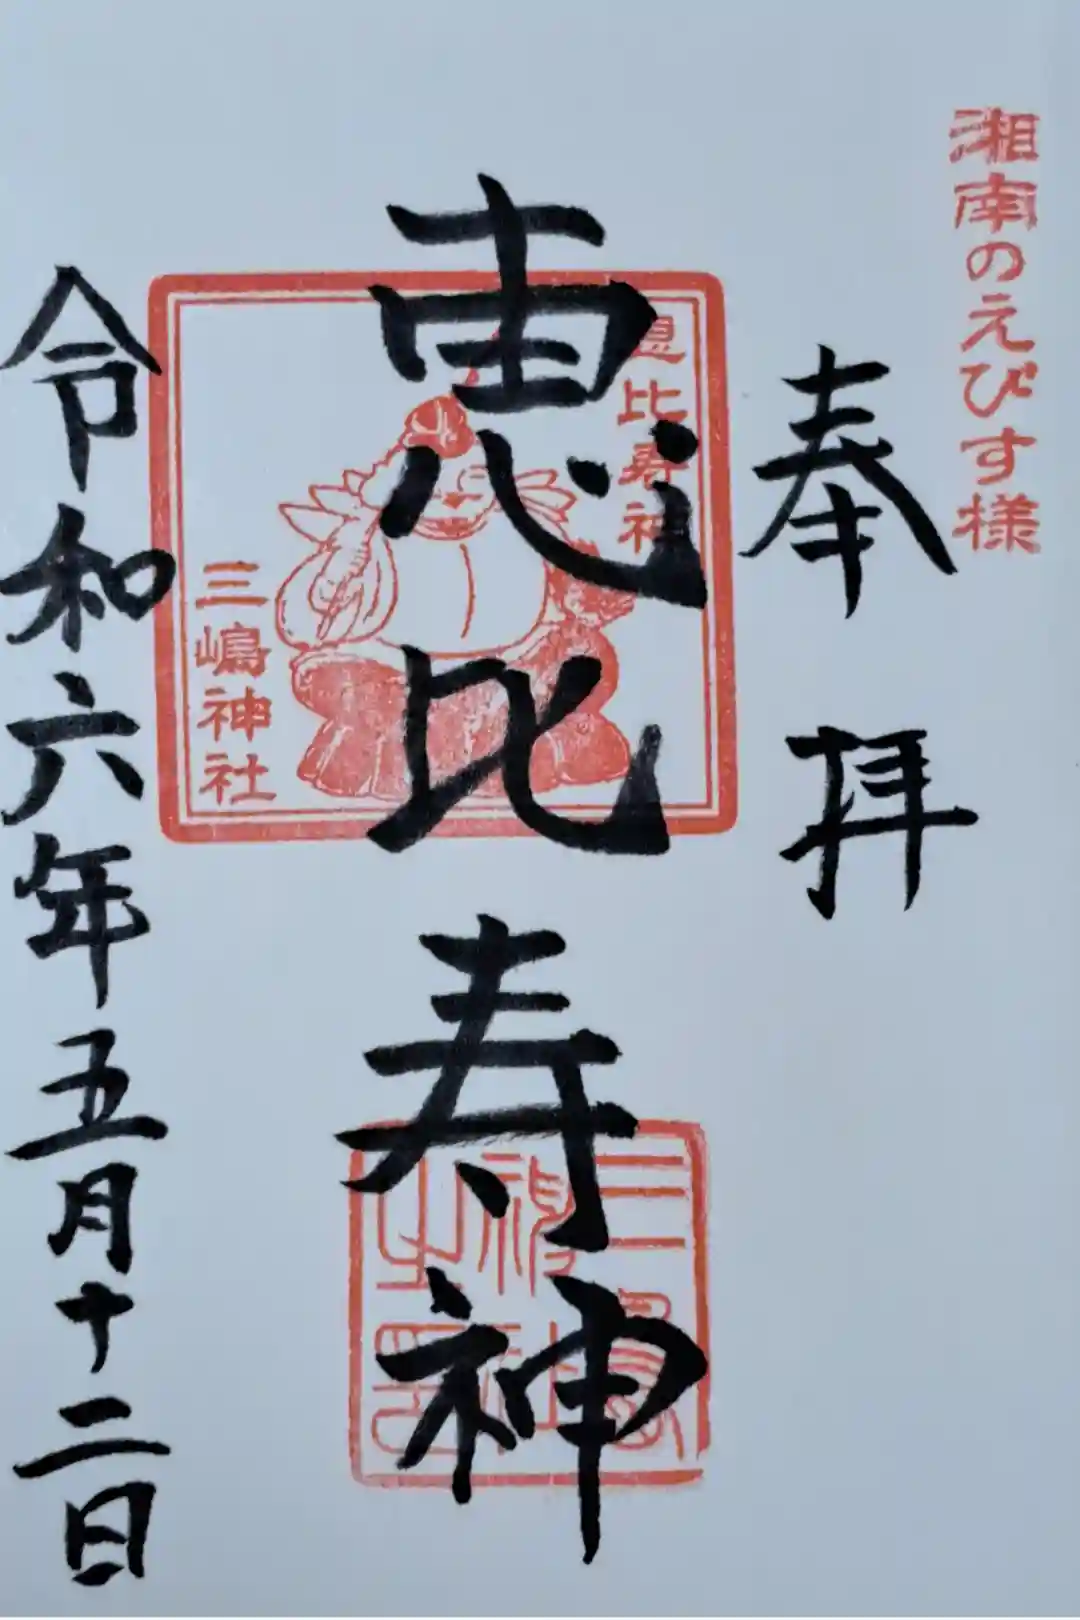 湘南のえびす様
奉拝
恵比寿神
恵比寿神
三嶋神社
三嶋
神社
之印
令和六年五月十二日